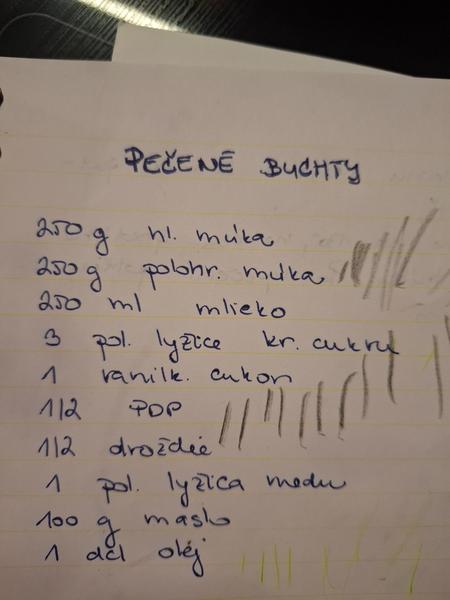 PEČENÉ BUCHTY
250 g hl. múka
250 g polohr. múka
250 ml mlieko
3 pol. lyžice kr. cukru
1 vanilk. cukor
1/2 PDP
1/2 droždie
1 pol. lyžica medu
100 g maslo
1 dcl olej